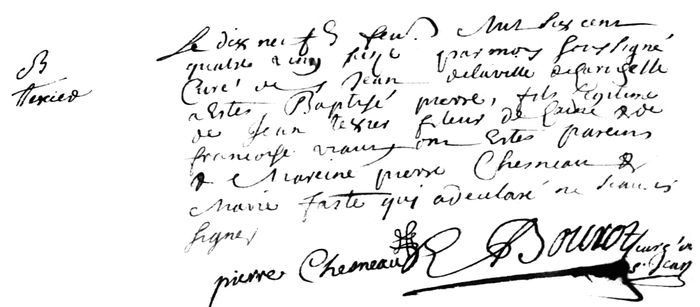 B
Texier
Le dix neuf feu. Mil six cent
quatre vingt seize par moy soussigné
Curé de St Jean de la ville
a Estes Baptisé pierre, fils legitime
de Jean texier fileur de laine & de
francoise ont Estes parein
& Mareine pierre Chesneau &
Marie faste qui a declaré ne scavoir
signer
pierre Chesneau Bouroz curé de
St Jean